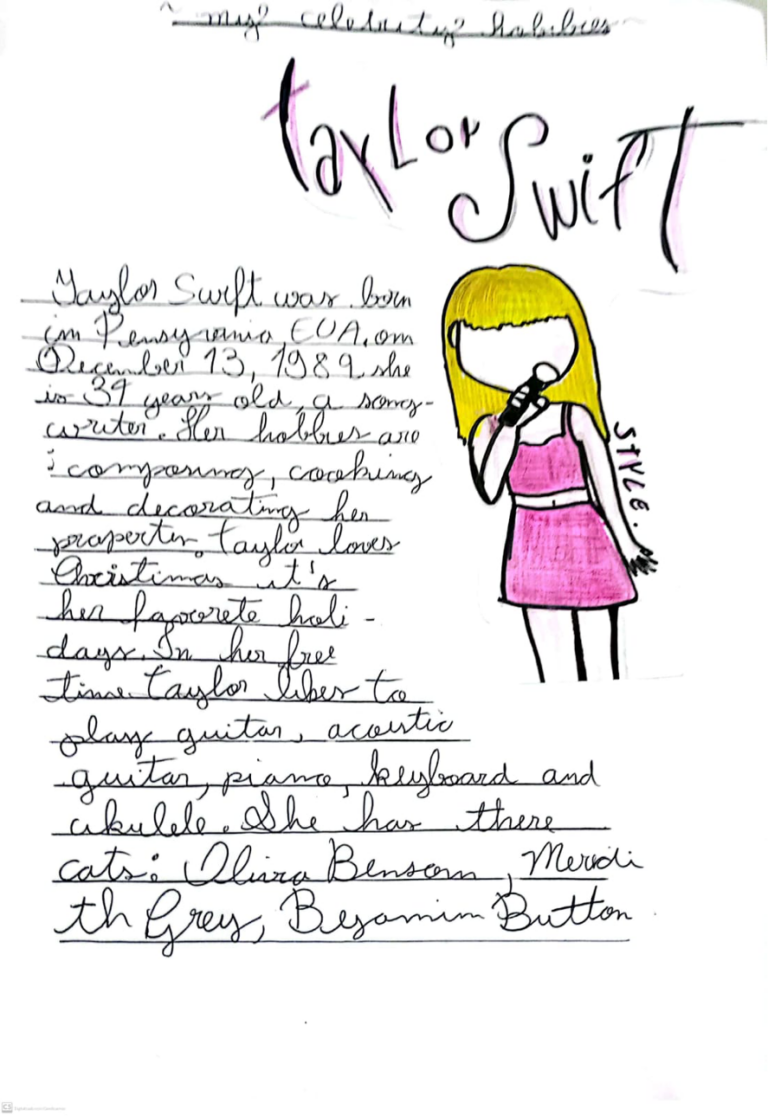 my celebrity hobbies
Taylor
Swift
Taylor Swift was born
in Pensyvania, EUA, on
December 13, 1989. she
is 34 years old, a song-
writer. Her hobbies are
: composing, cooking
and decorating her
property. taylor loves
Christimas it's
her favorete holi-
days. In her free
time taylor likes to
play guitar, acoustic
guitar, piano, keyboard and
ukulele. She has there
cats: Olivia Benson, Meredi
th Grey, Bejamin Button
STYLE.